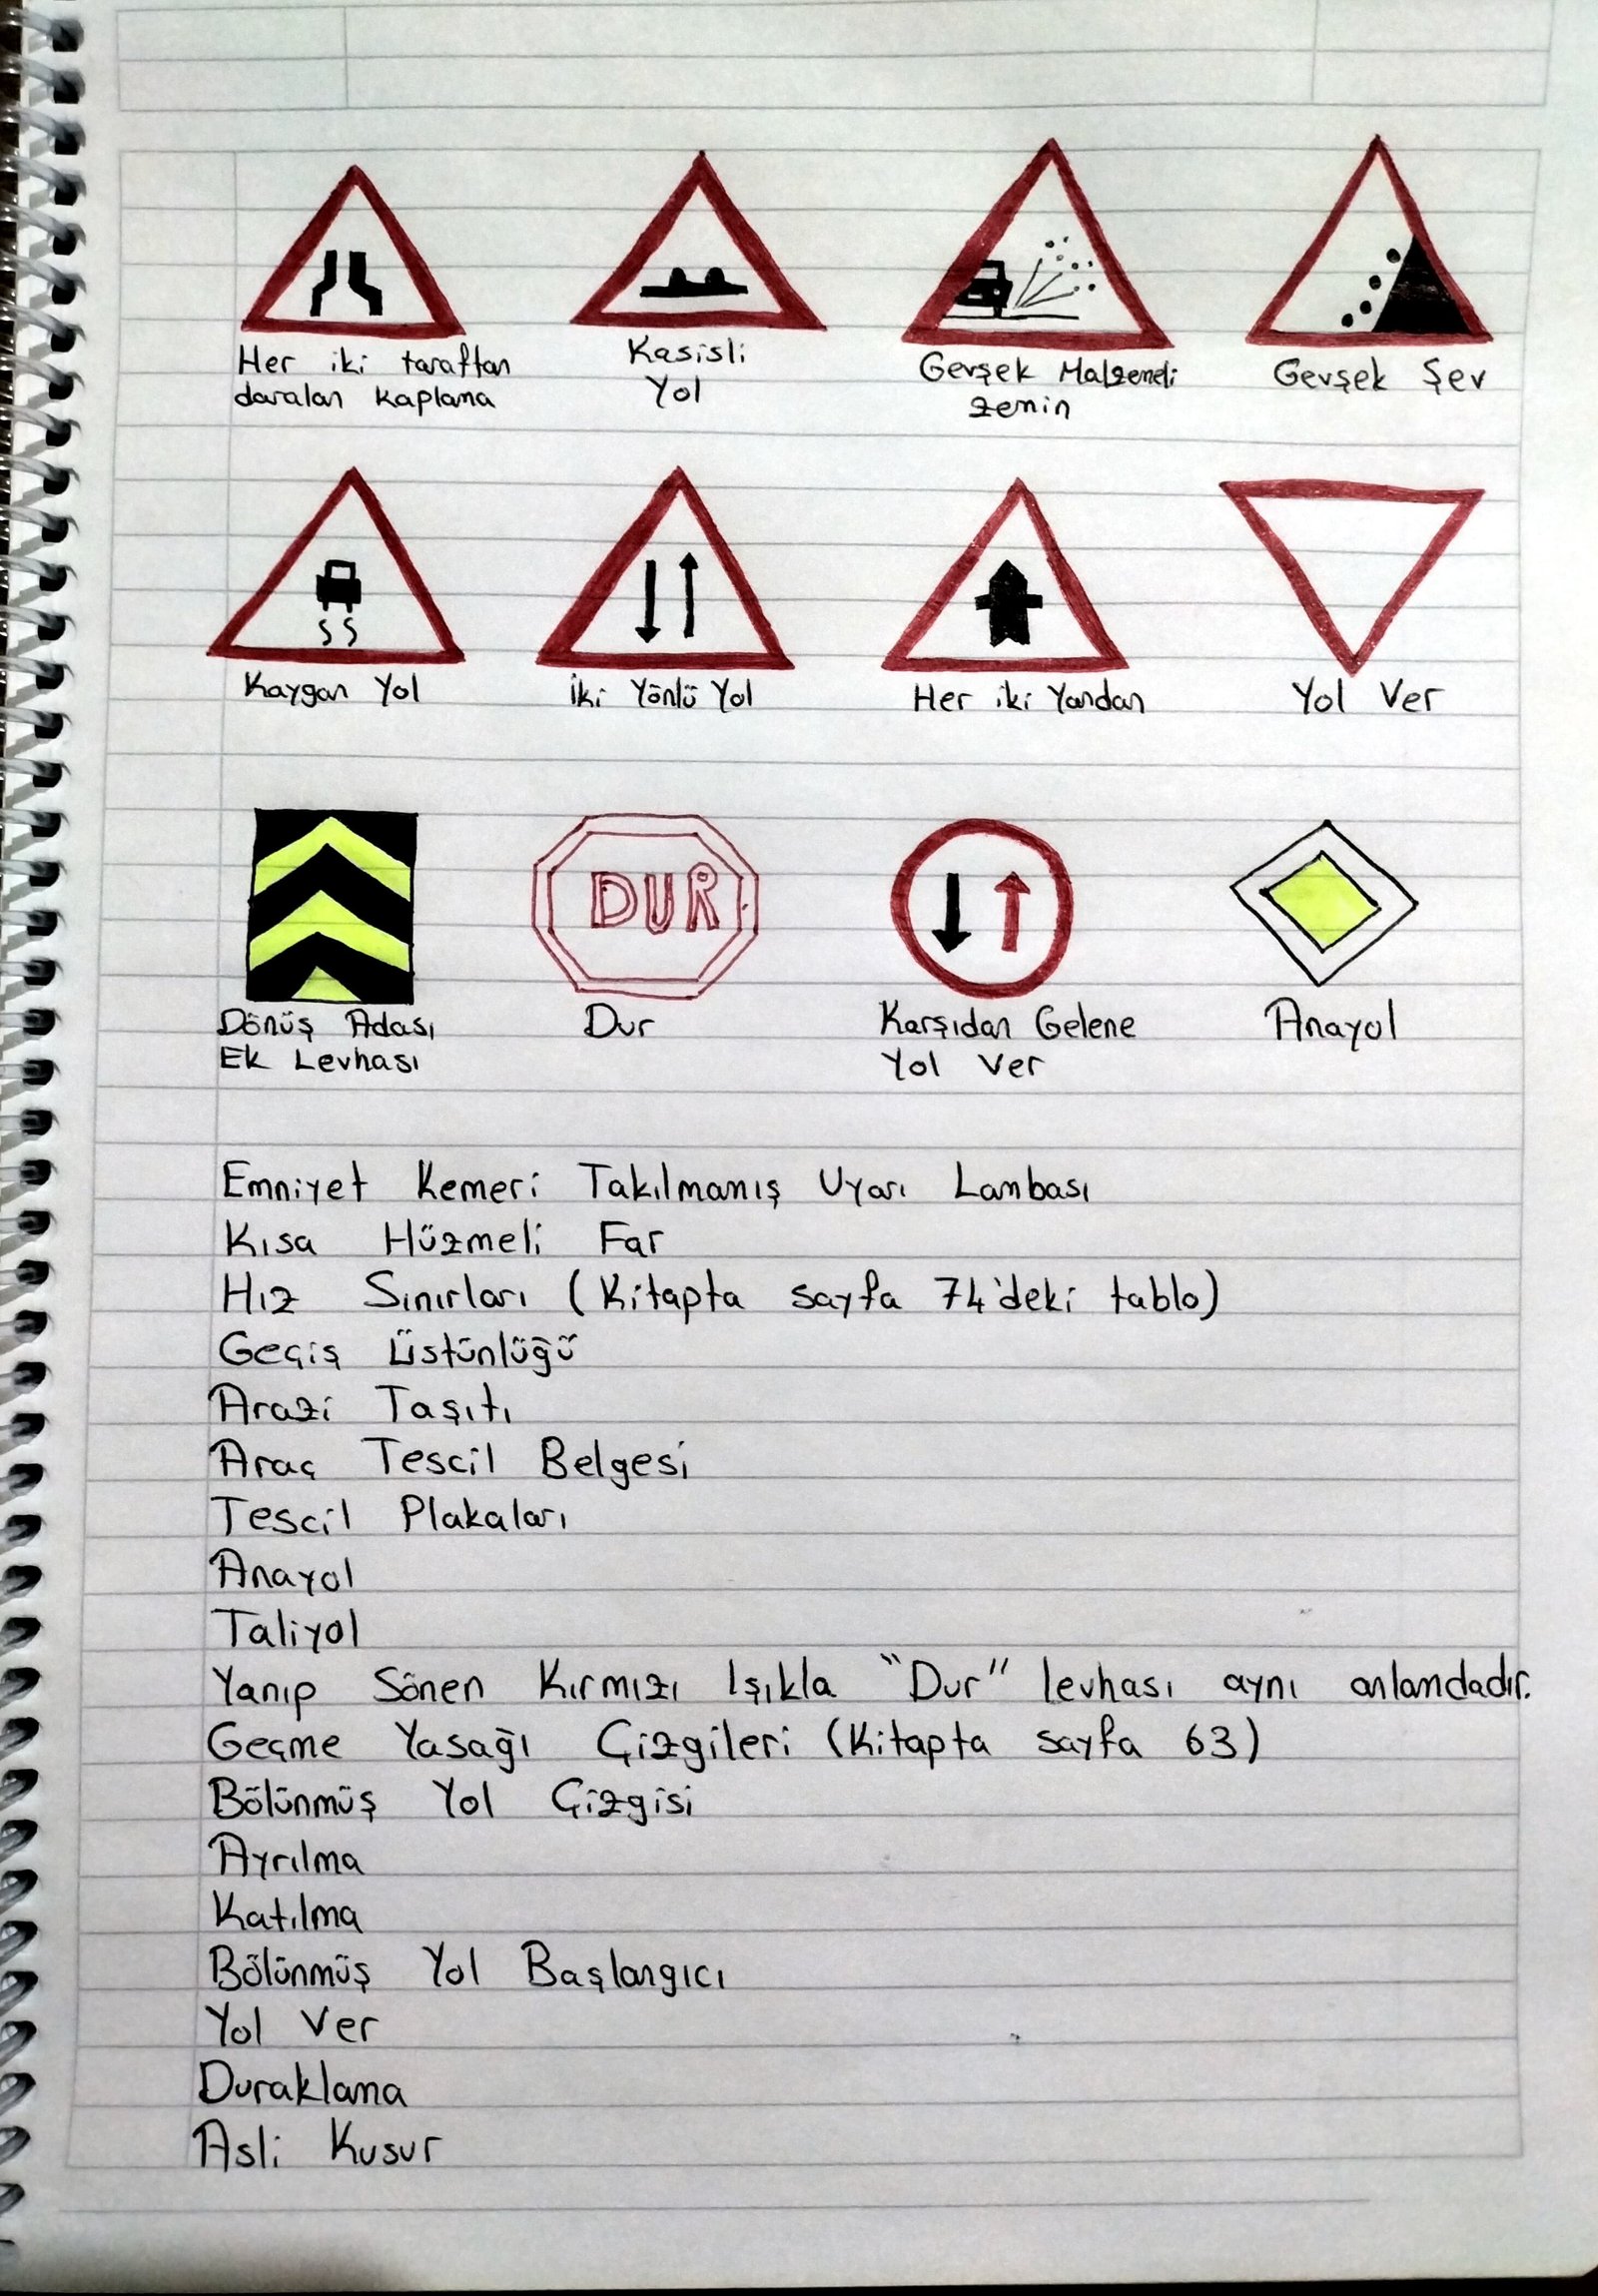 Her iki taraftan
daralan kaplama
Kasisli
Yol
Gevşek Malzemeli
zemin
Gevşek Şev
Kaygan Yol
İki Yönlü Yol
Her iki Yandan
Yol Ver
DUR
Dönüş Adası
Ek Levhası
Dur
Karşıdan Gelene
Yol Ver
Anayol
Emniyet Kemeri Takılmamış Uyarı Lambası
Kısa Hüzmeli Far
Hız Sınırları (Kitapta sayfa 74'deki tablo)
Geçiş Üstünlüğü
Arazi Taşıtı
Araç Tescil Belgesi
Tescil Plakaları
Anayol
Taliyol
Yanıp Sönen Kırmızı Işıkla "Dur" levhası aynı anlamdadır.
Geçme Yasağı Çizgileri (Kitapta sayfa 63)
Bölünmüş Yol Çizgisi
Ayrılma
Katılma
Bölünmüş Yol Başlangıcı
Yol Ver
Duraklama
Asli Kusur